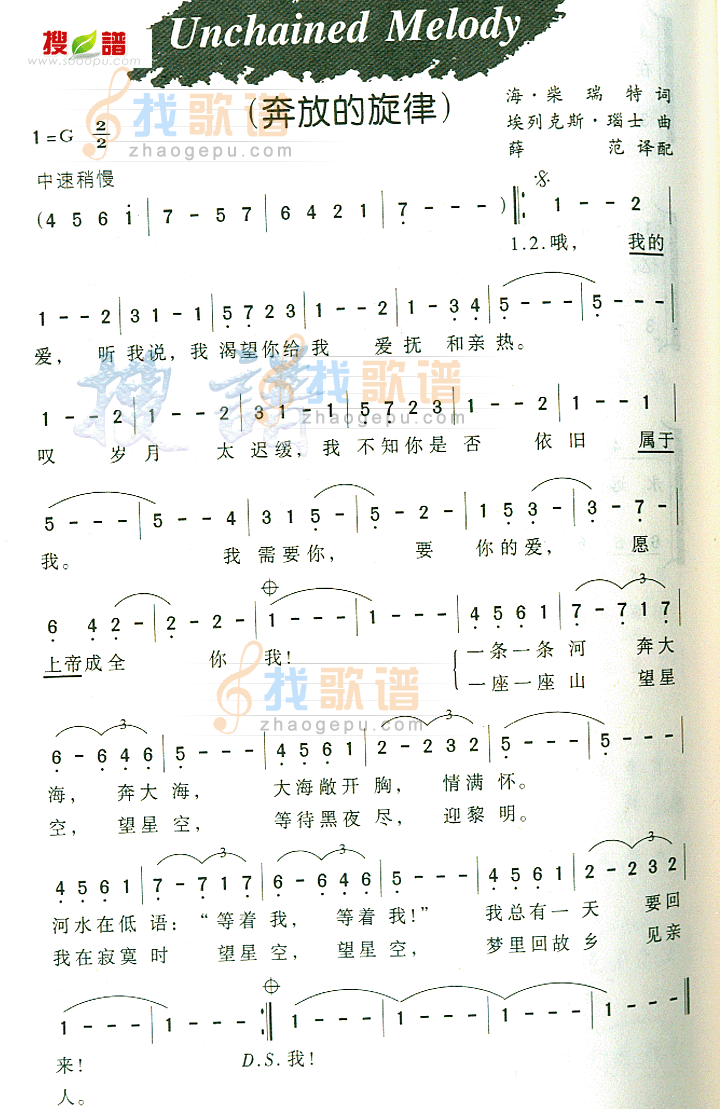 搜谱
www.sooopu.com
Unchained Melody
(奔放的旋律)
找歌谱
zhaogepu.com
1=G 2/2
海·柴瑞特 词
埃列克斯·瑙士 曲
薛范 译配
中速稍慢
(4 5 6 i | 7 - 5 7 | 6 4 2 1 | 7 - - - ) ‖: 1 - - 2 |
1.2.哦， 我的
1 - - 2 | 3 1 - 1 | 5 7 2 3 | 1 - - 2 | 1 - 3 4 | 5 - - - | 5 - - - |
爱， 听 我说，我 渴望你给 我 爱 抚 和亲 热。
搜譜
找歌谱
zhaogepu.com
1 - - 2 | 1 - - 2 | 3 1 - 1 | 5 7 2 3 | 1 - - 2 | 1 - - 1 |
叹 岁 月 太 迟缓，我 不知你是 否 依 旧 属于
5 - - - | 5 - - 4 | 3 1 5 - | 5 - 2 - | 1 5 3 - | 3 - 7 - |
我。 我 需 要 你， 要 你 的 爱， 愿
6 4 2 - | 2 - 2 - | 1 - - - | 1 - - - | 4 5 6 1 | 7 - 7 1 7 |
上帝成全 你 我! 一条一条 河 奔大
一座一座 山 望星
找歌谱
zhaogepu.com
6 - 6 4 6 | 5 - - - | 4 5 6 1 | 2 - 2 3 2 | 5 - - - | 5 - - - |
海， 奔大 海， 大海敞开 胸， 情满 怀。
空， 望星 空， 等待黑夜 尽， 迎黎 明。
4 5 6 1 | 7 - 7 1 7 | 6 - 6 4 6 | 5 - - - | 4 5 6 1 | 2 - 2 3 2 |
河水在低 语：“等着 我， 等着 我!” 我总有一 天 要回
我在寂寞 时 望星 空， 望星 空， 梦里回故 乡 见亲
1 - - - | 1 - - - :‖ 1 - - - | 1 - - - | 1 - - - | 1 - - - ‖
来! D.S.我!
人。